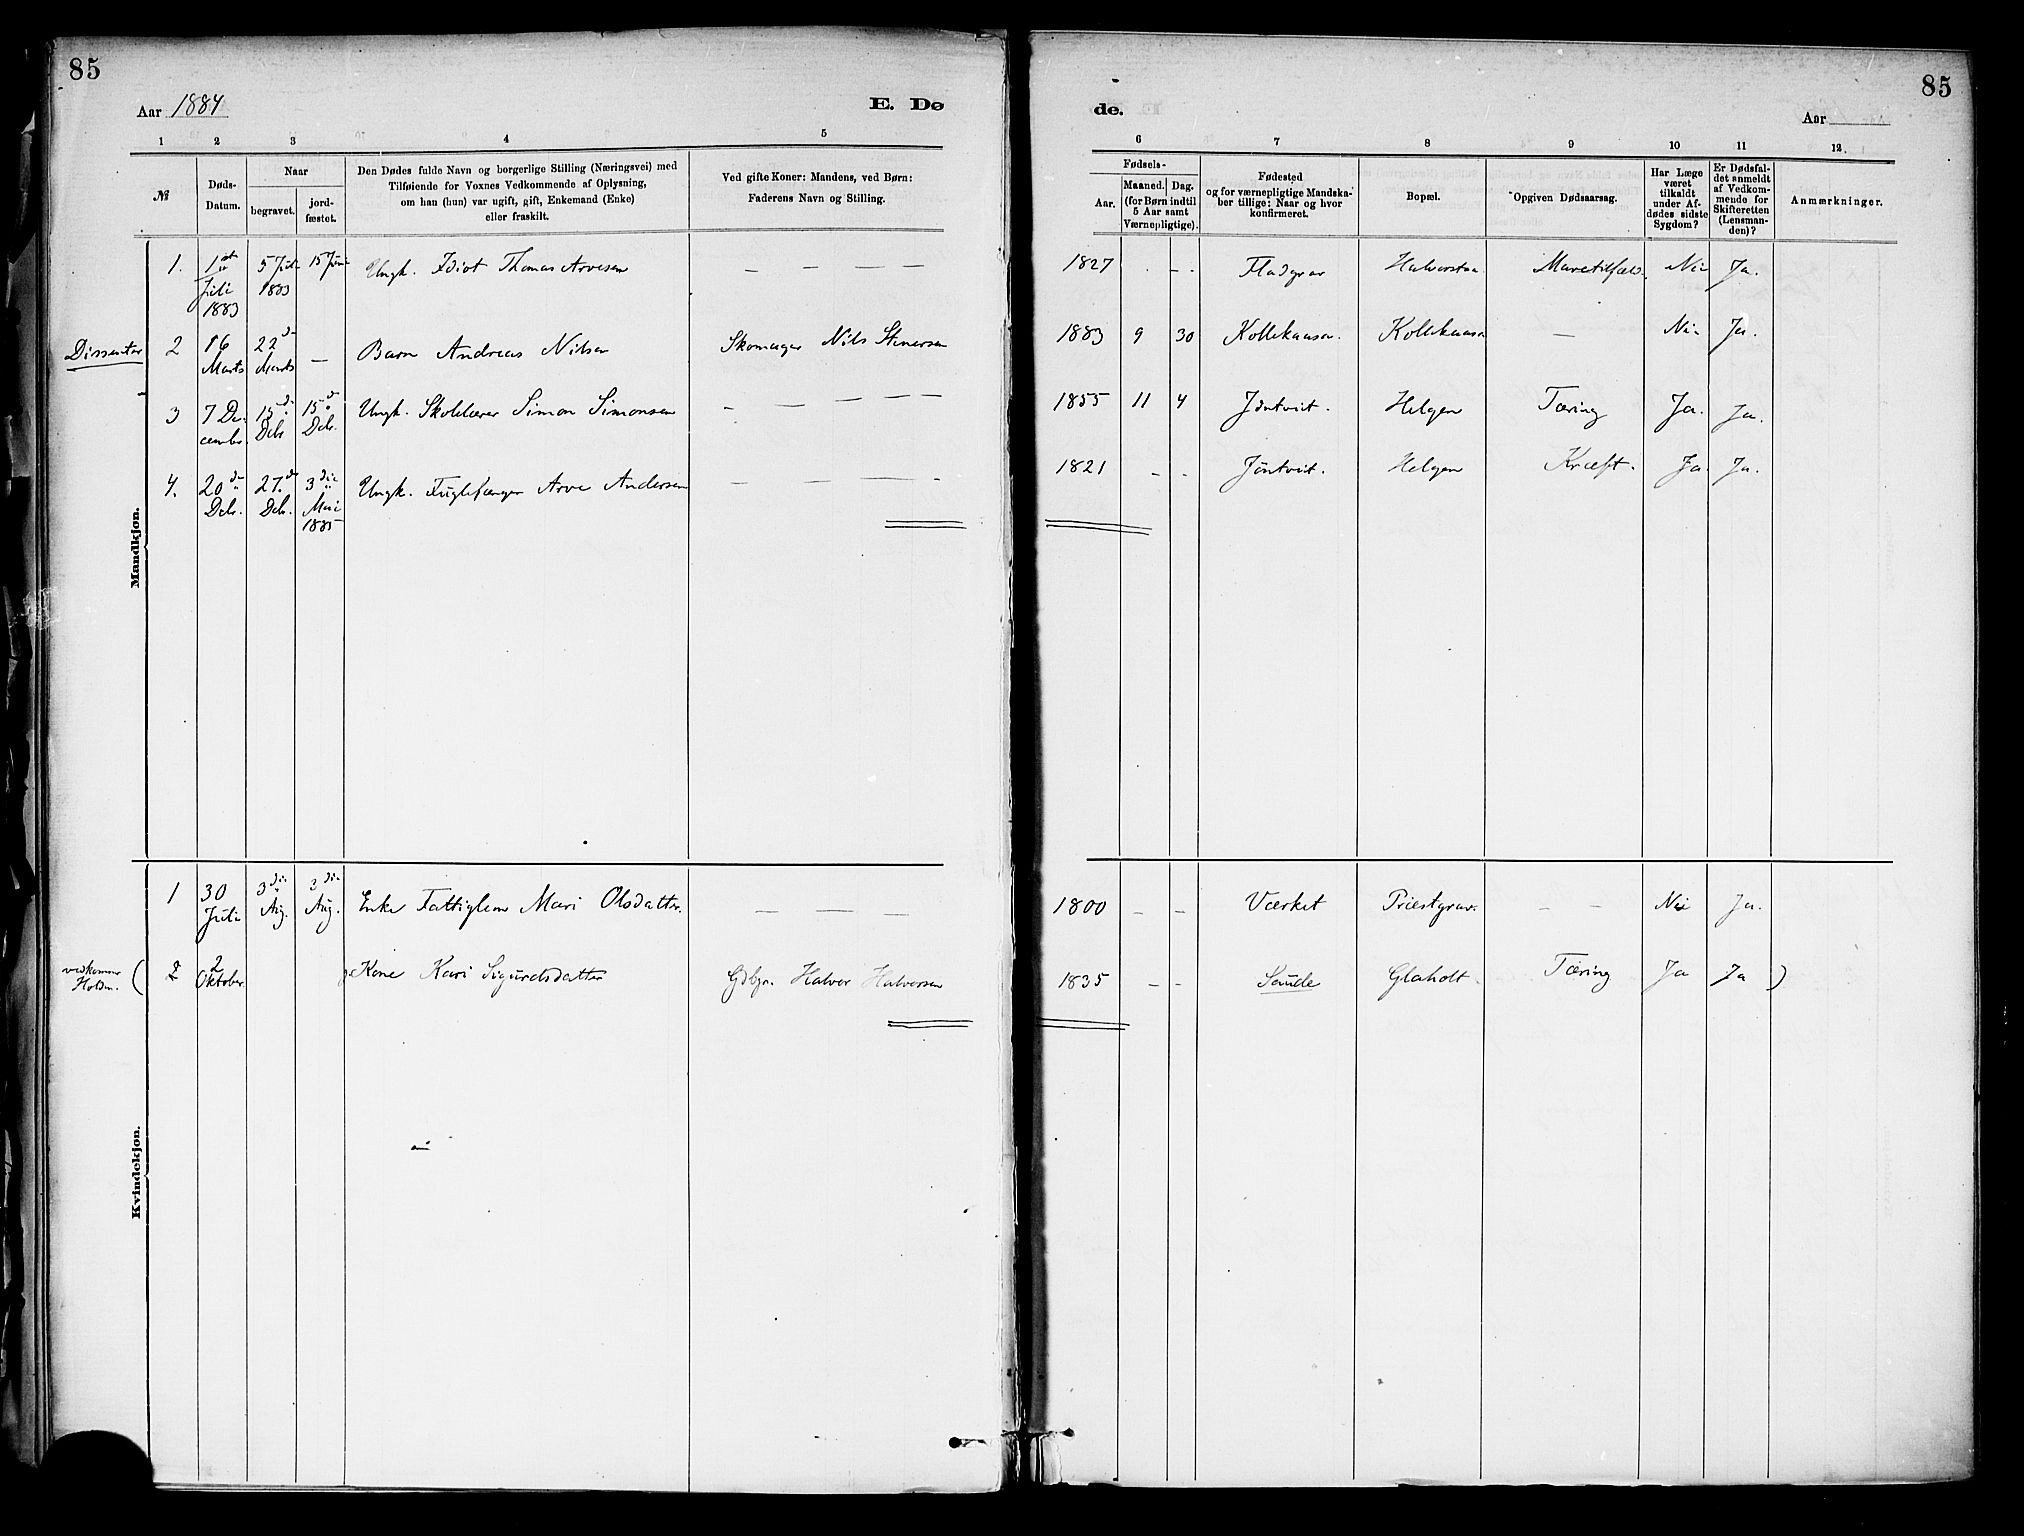 85
85
Aar 1884
E. Dø
de.
Aar
1 2 3 4 5
6 7 8 9 10 11 12.
№
Døds-
Datum.
Naar
begravet.
jord-
fæstet.
Den Dødes fulde Navn og borgerlige Stilling (Næringsvei) med
Tilføiende for Voxnes Vedkommende af Oplysning,
om han (hun) var ugift, gift, Enkemand (Enke)
eller fraskilt.
Ved gifte Koner: Mandens, ved Børn:
Faderens Navn og Stilling.
Fødsels-
Aar.
Maaned. Dag.
(for Børn indtil
5 Aar samt
Værnepligtige).
Fødested
og for værnepligtige Mandska-
ber tillige: Naar og hvor
konfirmeret.
Bopæl.
Opgiven Dødsaarsag.
Har Læge
været
tilkaldt
under Af-
dødes sidste
Sygdom?
Er Dødsfal-
det anmeldt
af Vedkom-
mende for
Skifteretten
(Lensman-
den)?
Anmærkninger.
Mandkjøn.
1. 1st Juli 1883 5 Juli 1883 15 Juni Ungk. Idiot Thomas Arvesen — — — — 1827 - - Fladgrav Nei Ja.
Dissenter 2 16 Marts 22d Marts — Barn Andreas Nilsen Skomager Nils Stenersen 1883 9 30 Kollekaasa Kollekaasa — Nei Ja.
3 7 December 15de Debr 15de Debr. Ungk. Skolelærer Simon Simonsen — — — — 1855 11 4 Jøntvit. Helgen Tæring Ja. Ja.
4. 20de Debr. 27de Debr. 3die Mai 1885 Ungk. Fuglefænger Arve Andersen — — — - 1821 - - Jøntvit. Helgen Kræft. Ja Ja.
Kvindekjøn.
1 30 Juli 3die Aug. 3die Aug. Enke Fattiglem Mari Olsdatter. — — — — 1800 - - Værket Præstgrav. - - Nei Ja.
vedkommer Holden. ( 2 2 Oktober Kone Kari Sigurdsdatter Gdbgr. Halvor Halvorsen 1835 - - Saude Glaholt Tæring Ja Ja )